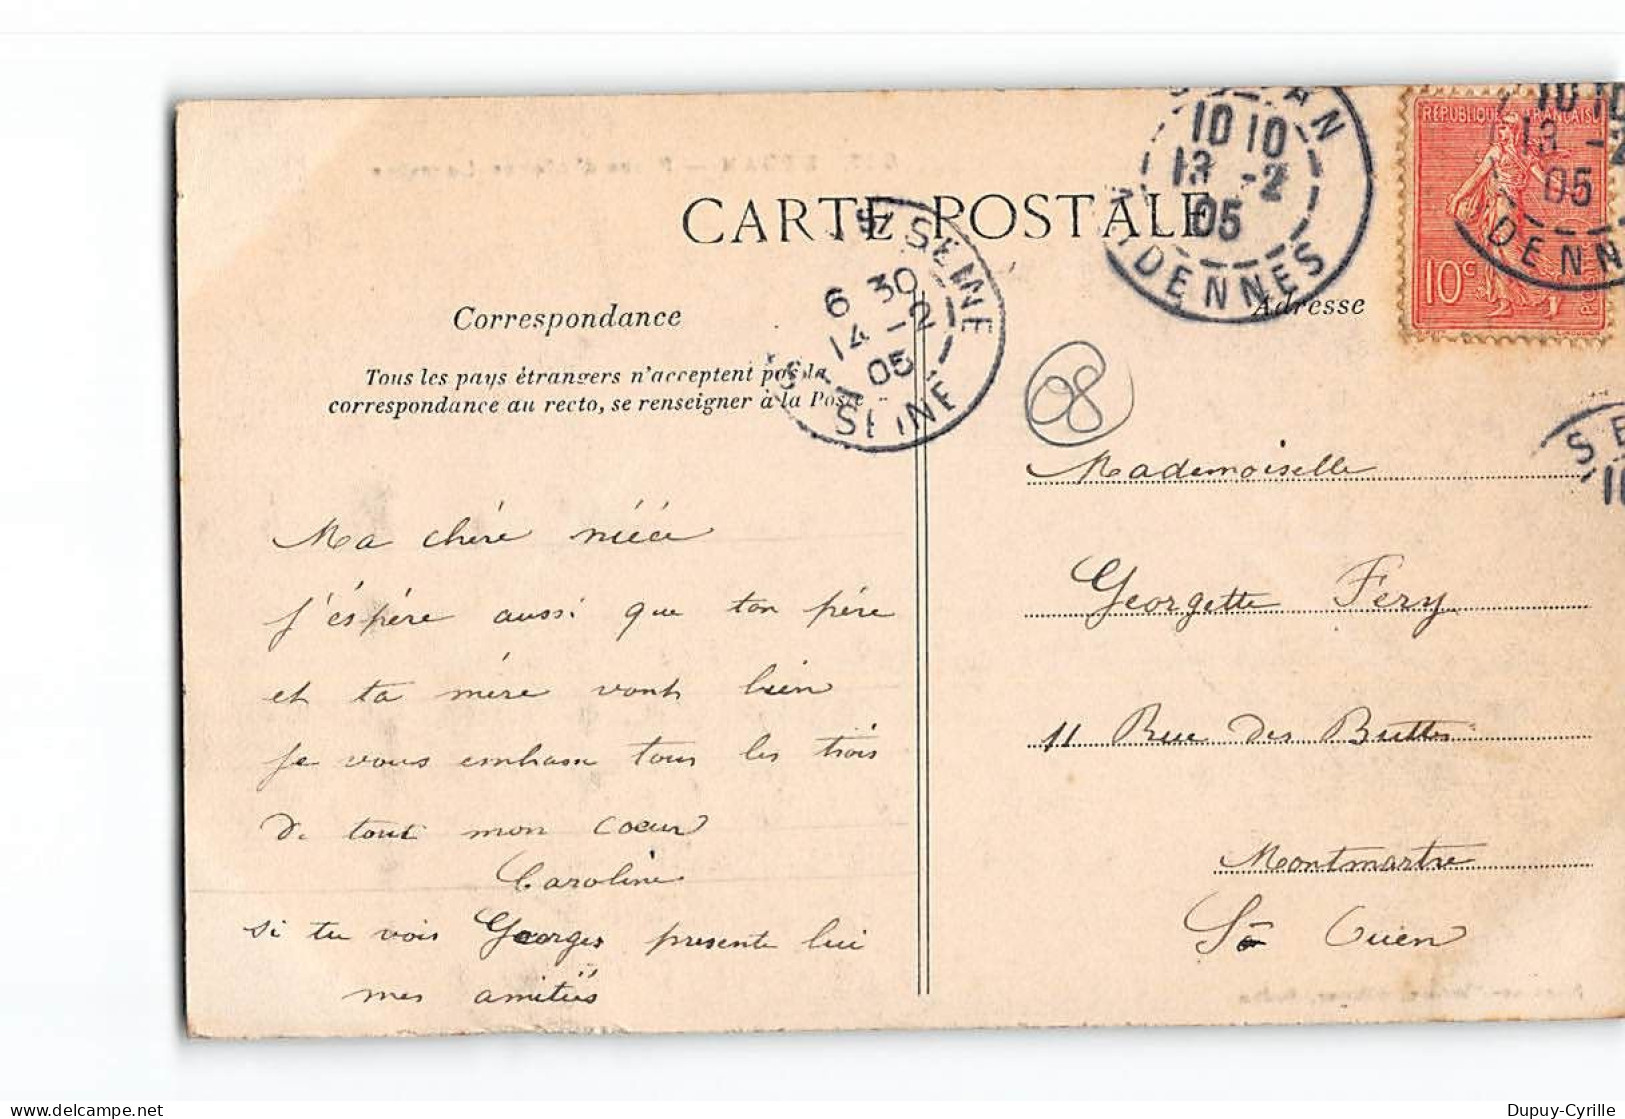 CARTE POSTALE
Correspondance
Tous les pays étrangers n'acceptent pas la
correspondance au recto, se renseigner à la Poste
Adresse
10 10
13 -2
05
DENNES
RÉPUBLIQUE FRANÇAISE
10c
10 10
13 -2
05
DENN
S/ SEINE
6 30
14 -2
05
SEINE
SE
10
08
Ma chére niéce
j'éspére aussi que ton pére
et ta mére vont bien
je vous embrasse tous les trois
de tout mon coeur
Caroline
si tu vois Georges presente lui
mes amitiés
Mademoiselle
Georgette Fery
11 Rue des Buttes
Montmartre
St Ouen
Dupuy-Cyrille